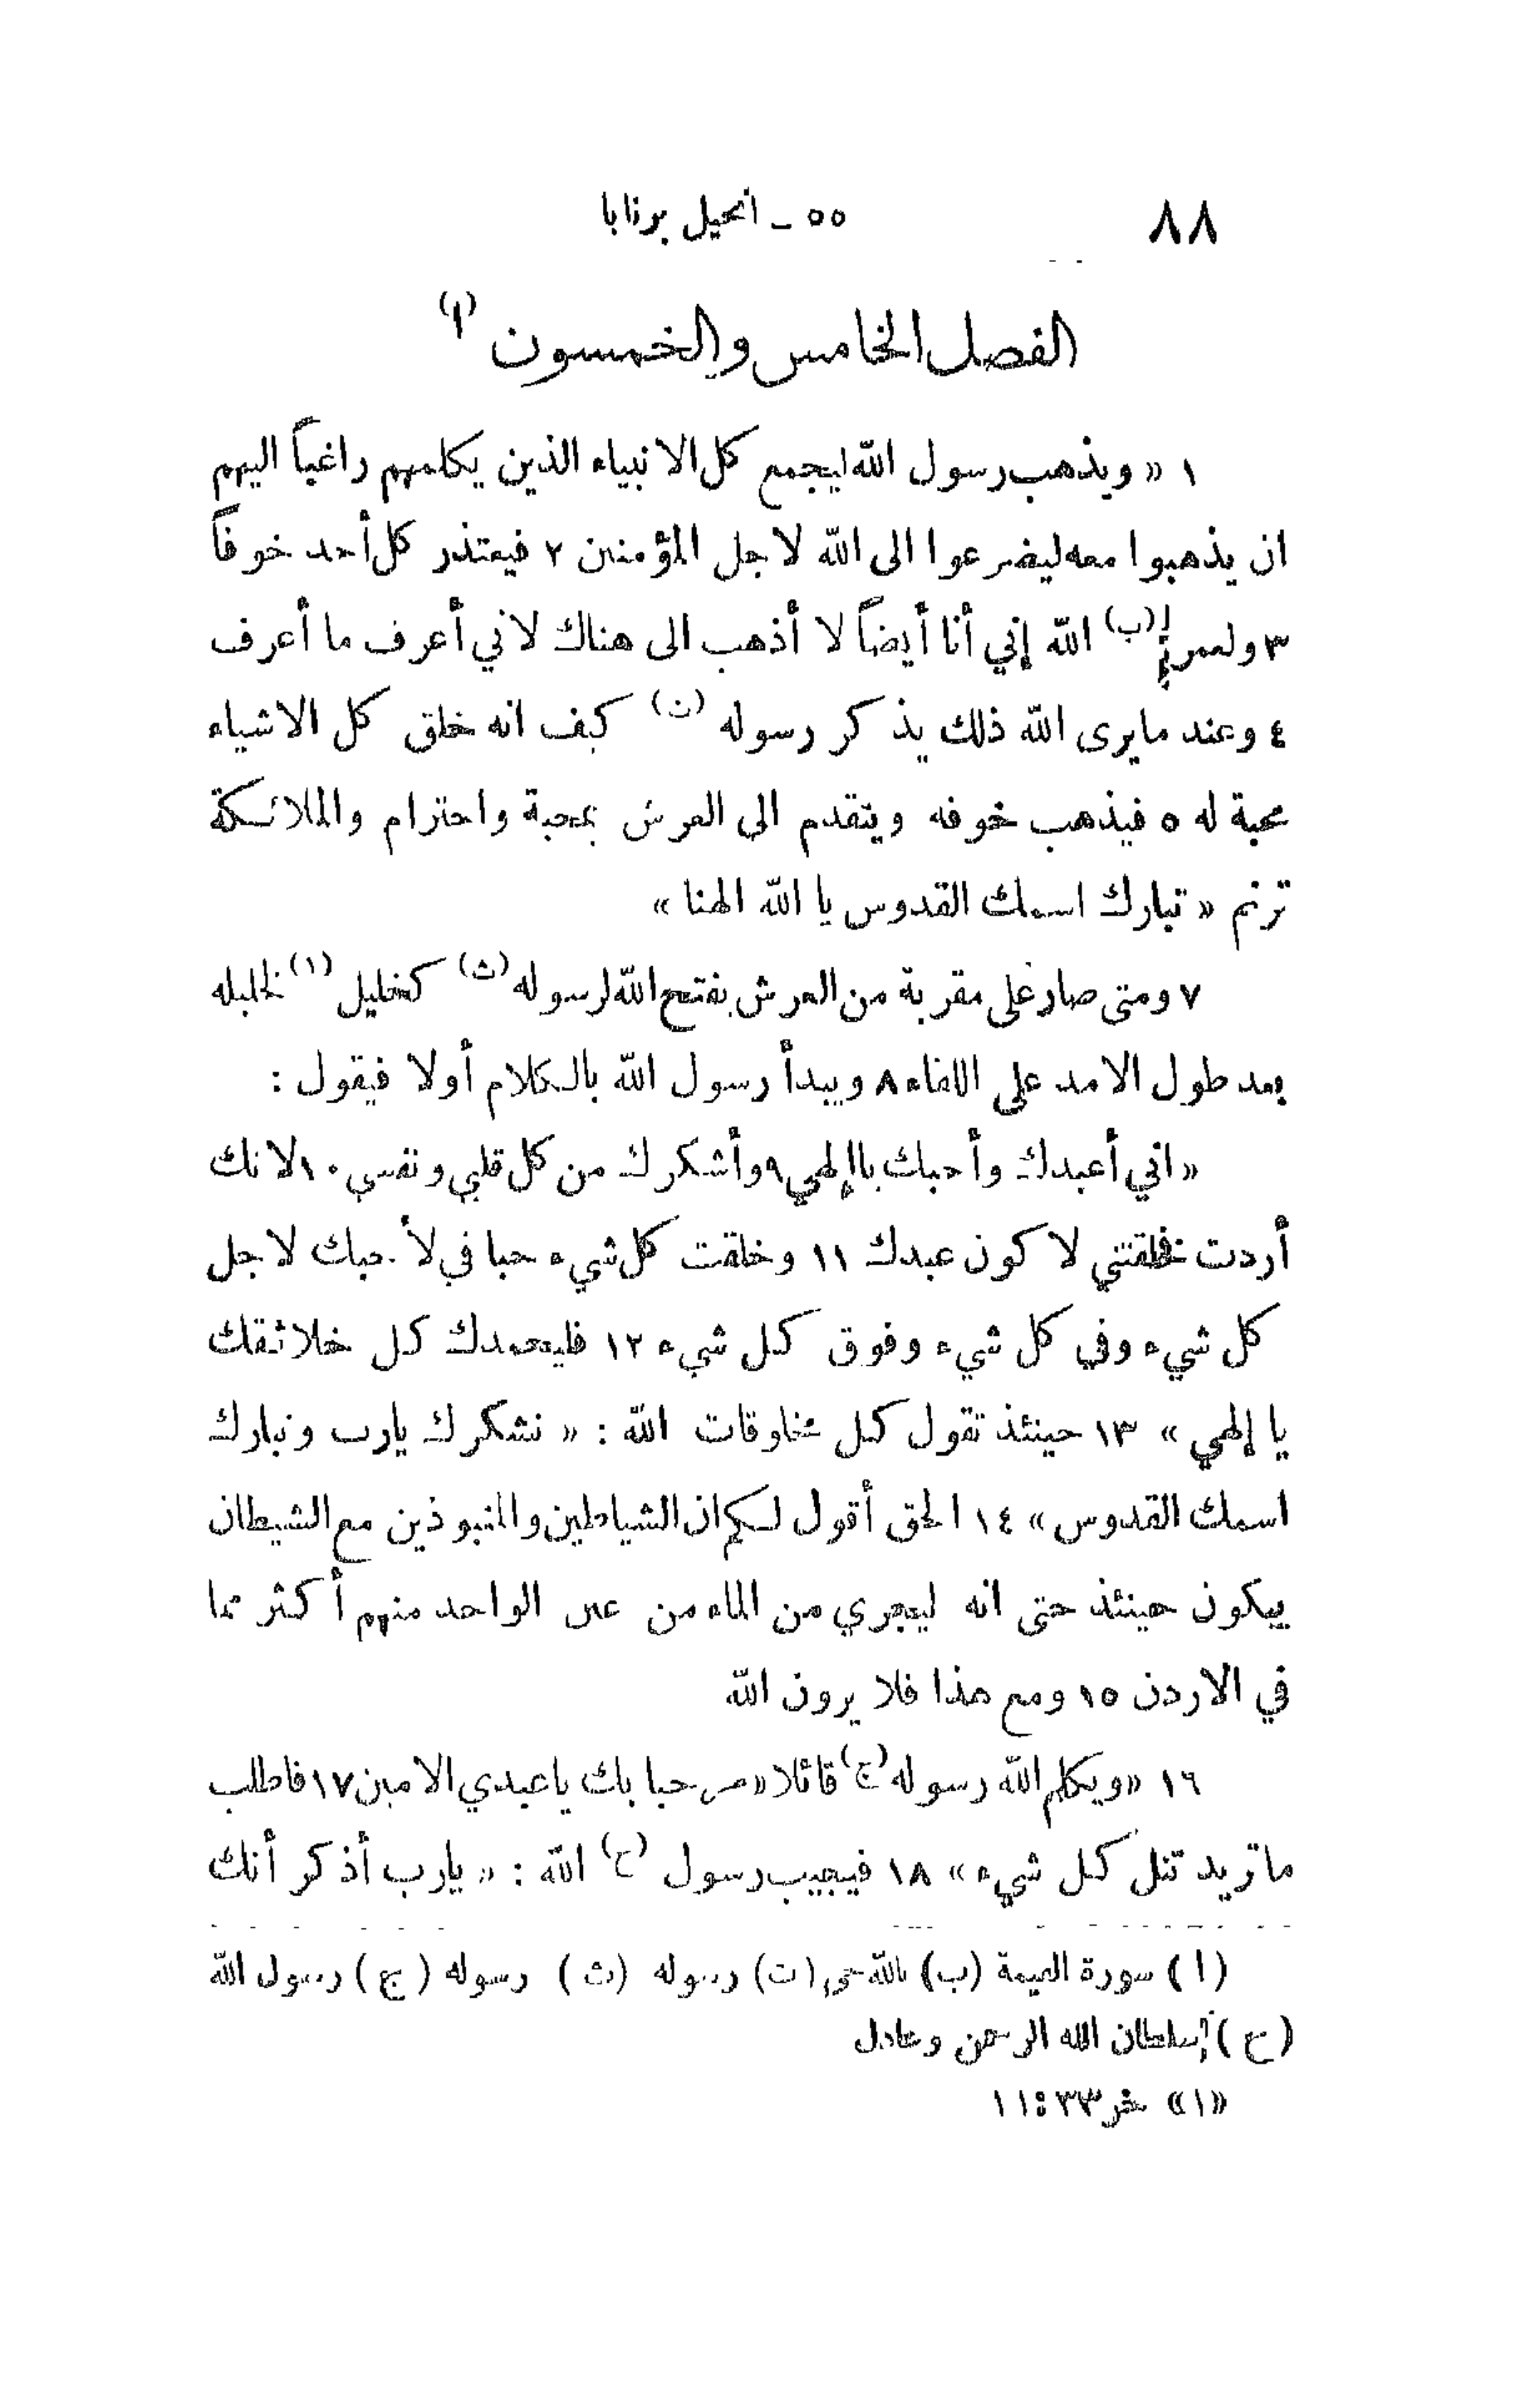 ٨٨
٥٥ ـ انجيل برنابا
الفصل الخامس والخمسون (ا)
١ « ويذهب رسول الله ليجمع كل الانبياء الذين يكلمهم راغباً اليهم
ان يذهبوا معه ليضرعوا الى الله لاجل المؤمنين ٢ فيعتذر كل أحد خوفاً
٣ ولعمر (ب) الله إني أنا أيضاً لا أذهب الى هناك لاني أعرف ما أعرف
٤ وعند ما يرى الله ذلك يذكر رسوله (ت) كيف انه خلق كل الاشياء
محبة له ٥ فيذهب خوفه ويتقدم الى العرش بمحبة واحترام والملائكة
ترنم « تبارك اسمك القدوس يا الله الهنا »
٧ ومتى صار على مقربة من العرش يفتح الله لرسوله (ث) كخليل (١) لخليله
بعد طول الامد على اللقاء ٨ ويبدأ رسول الله بالكلام أولا فيقول :
« اني أعبدك وأحبك ياإلهي ٩ وأشكرك من كل قلبي ونفسي ١٠ لانك
أردت فخلقتني لاكون عبدك ١١ وخلقت كل شيء حبا في لأحبك لاجل
كل شيء وفي كل شيء وفوق كل شيء ١٢ فليحمدك كل خلائقك
يا إلهي » ١٣ حينئذ تقول كل مخلوقات الله : « نشكرك يارب ونبارك
اسمك القدوس » ١٤ الحق أقول لكم ان الشياطين والمنبوذين مع الشيطان
يبكون حينئذ حتى انه ليجري من الماء من عين الواحد منهم أكثر مما
في الاردن ١٥ ومع هذا فلا يرون الله
١٦ « ويكلم الله رسوله (ج) قائلا « مرحبا بك ياعبدي الامين ١٧ فاطلب
ما تريد تنل كل شيء » ١٨ فيجيب رسول (ح) الله : « يارب أذكر أنك
(ا) سورة (ب) بالله حي (ت) رسوله (ث) رسوله (ج) رسول الله
(ح) سلطان الله الرحمن وعادل
«١» خر ٣٣:١١